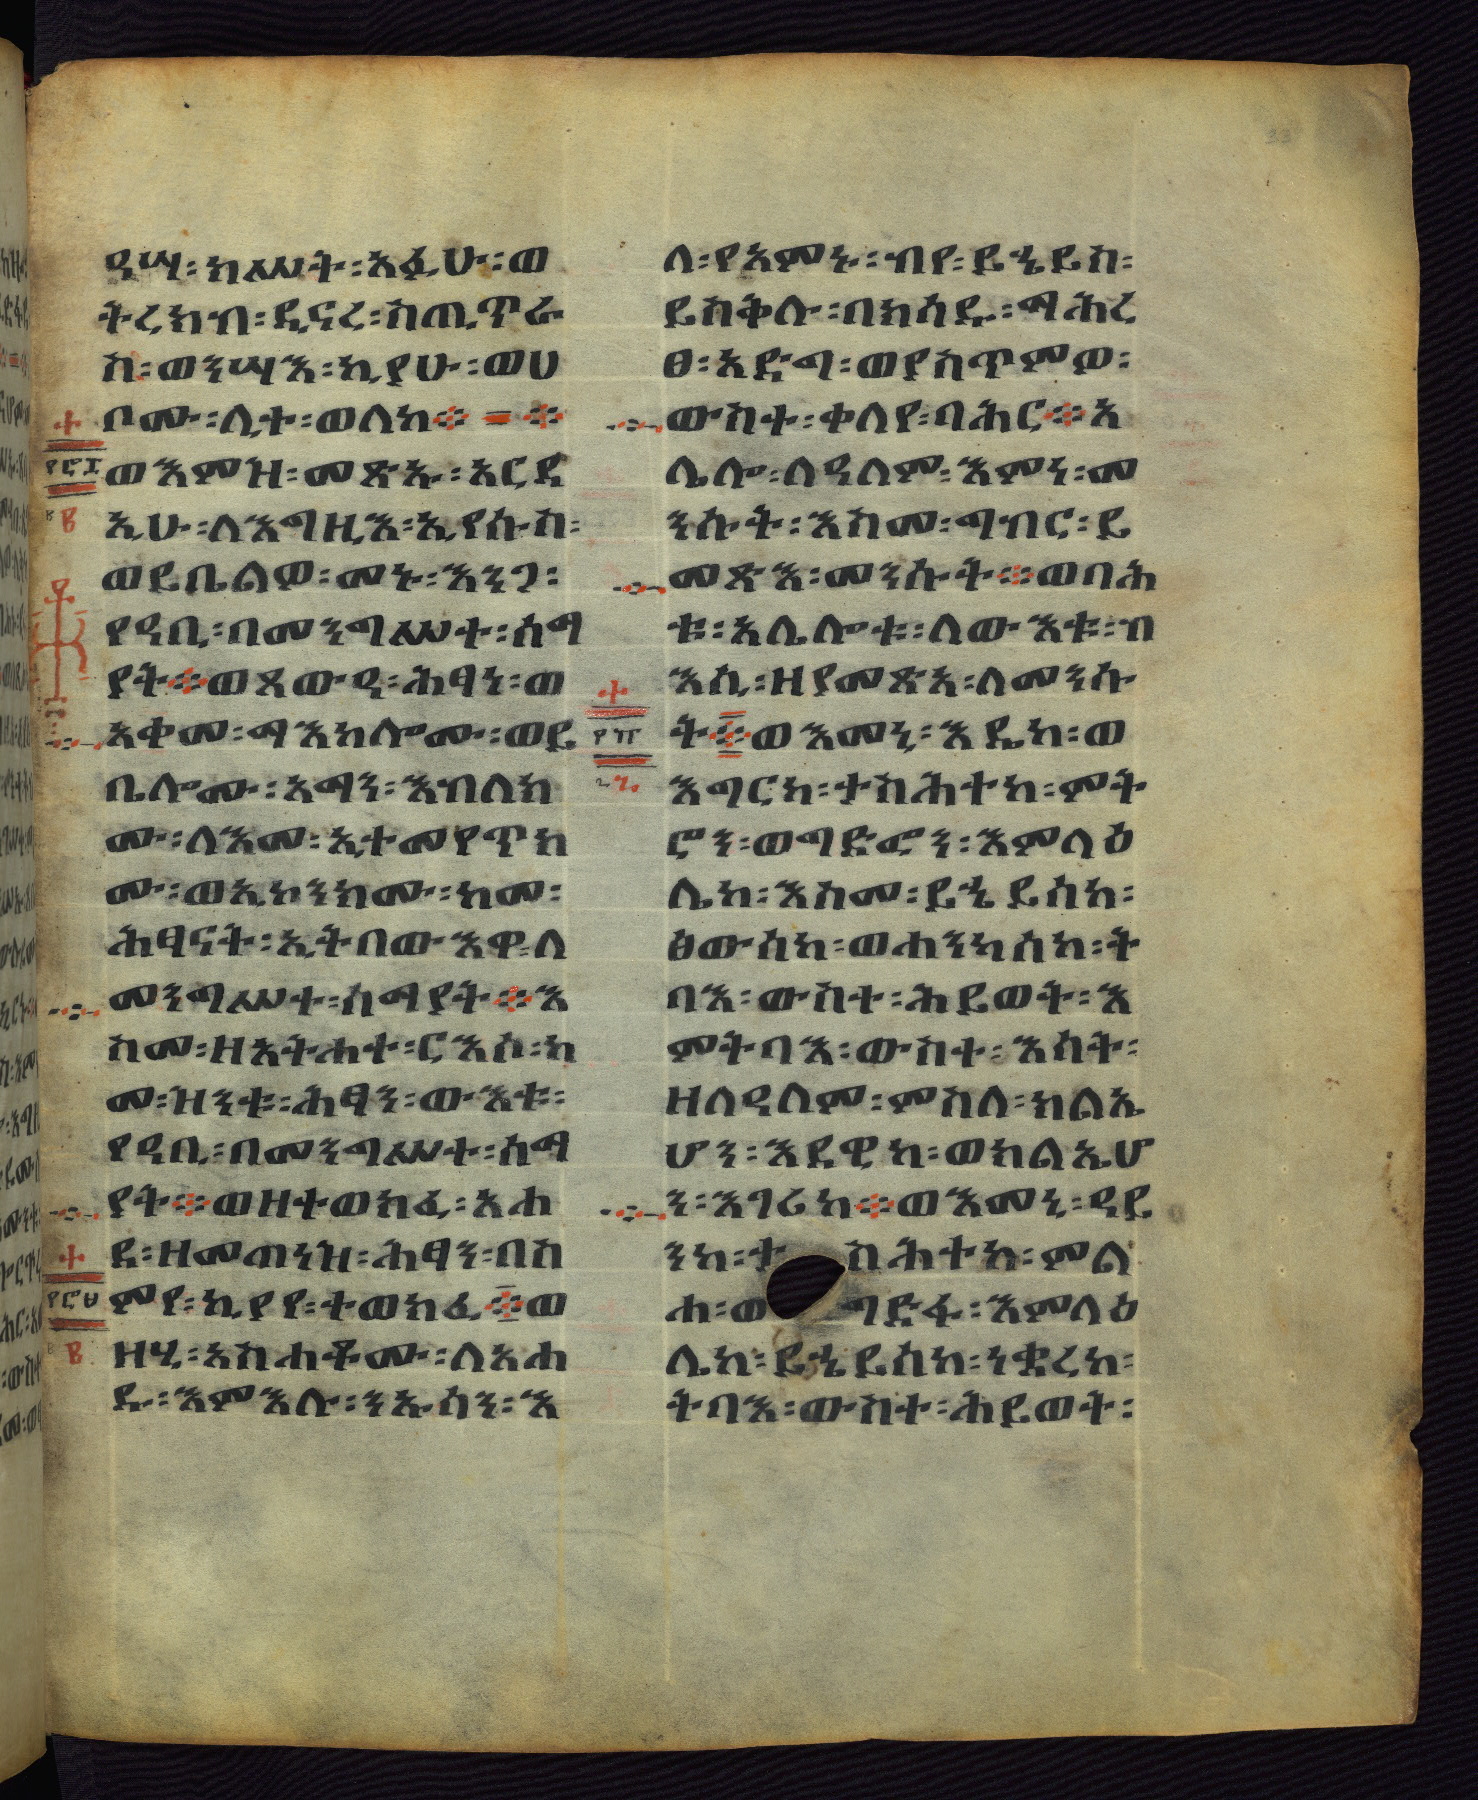 ዓሣ፡ ክሡት፡ አፉሁ፡ ወ
ትረክብ፡ ዲናረ፡ ስጢጥራ
ስ፡ ወንሣእ፡ ኪያሁ፡ ወሀ
ቦሙ፡ ሊተ፡ ወለከ።
ወእምዝ፡ መጽኡ፡ አርዳ
ኢሁ፡ ለእግዚእ፡ ኢየሱስ፡
ወይቤልዎ፡ መኑ፡ እንጋ፡
የዓቢ፡ በመንግሥተ፡ ሰማ
ያት። ወጸውዓ፡ ሕፃነ፡ ወ
አቀመ፡ ማእከሎሙ፡ ወይ
ቤሎሙ፡ አማን፡ እብለክ
ሙ፡ ለእመ፡ ኢተመየጥክ
ሙ፡ ወኢኮንክሙ፡ ከመ፡
ሕፃናት፡ ኢትበውእዋ፡ ለ
መንግሥተ፡ ሰማያት። እ
ስመ፡ ዘአትሐተ፡ ርእሶ፡ ከ
መ፡ ዝንቱ፡ ሕፃን፡ ውእቱ፡
የዓቢ፡ በመንግሥተ፡ ሰማ
ያት። ወዘተወክፈ፡ አሐ
ደ፡ ዘመጠነዝ፡ ሕፃነ፡ በስ
ምየ፡ ኪያየ፡ ተወክፈ። ወ
ዘሂ፡ አስሐቶሙ፡ ለአሐ
ዱ፡ እምእሉ፡ ንኡሳን፡ እ
ለ፡ የአምኑ፡ ብየ፡ ይኄይስ፡
ይስቅሉ፡ በክሳዱ፡ ማሕረ
ፀ፡ አድግ፡ ወያስጥምዎ፡
ውስተ፡ ቀላየ፡ ባሕር። አ
ሌሎ፡ ለዓለም፡ እምነ፡ መ
ንሱት፡ እስመ፡ ግብር፡ ይ
መጽእ፡ መንሱት። ወባሕ
ቱ፡ አሌሎቱ፡ ለውእቱ፡ ብ
እሲ፡ ዘያመጽኣ፡ ለመንሱ
ት። ወእመኒ፡ እዴከ፡ ወ
እግርከ፡ ታስሕተከ፡ ምት
ሮን፡ ወግድፎን፡ እምላዕ
ሌከ፡ እስመ፡ ይኄይሰከ፡
ፅውስከ፡ ወሐንካሰከ፡ ት
ባእ፡ ውስተ፡ ሕይወት፡ እ
ምትባእ፡ ውስተ፡ እሳት፡
ዘለዓለም፡ ምስለ፡ ክልኤ
ሆን፡ እደዊከ፡ ወክልኤሆ
ን፡ እገሪከ። ወእመኒ፡ ዓይ
ንከ፡ ታስሕተከ፡ ምል
ሐ፡ ወግድፋ፡ እምላዕ
ሌከ፡ ይኄይሰከ፡ ነቋረከ፡
ትባእ፡ ውስተ፡ ሕይወት፡